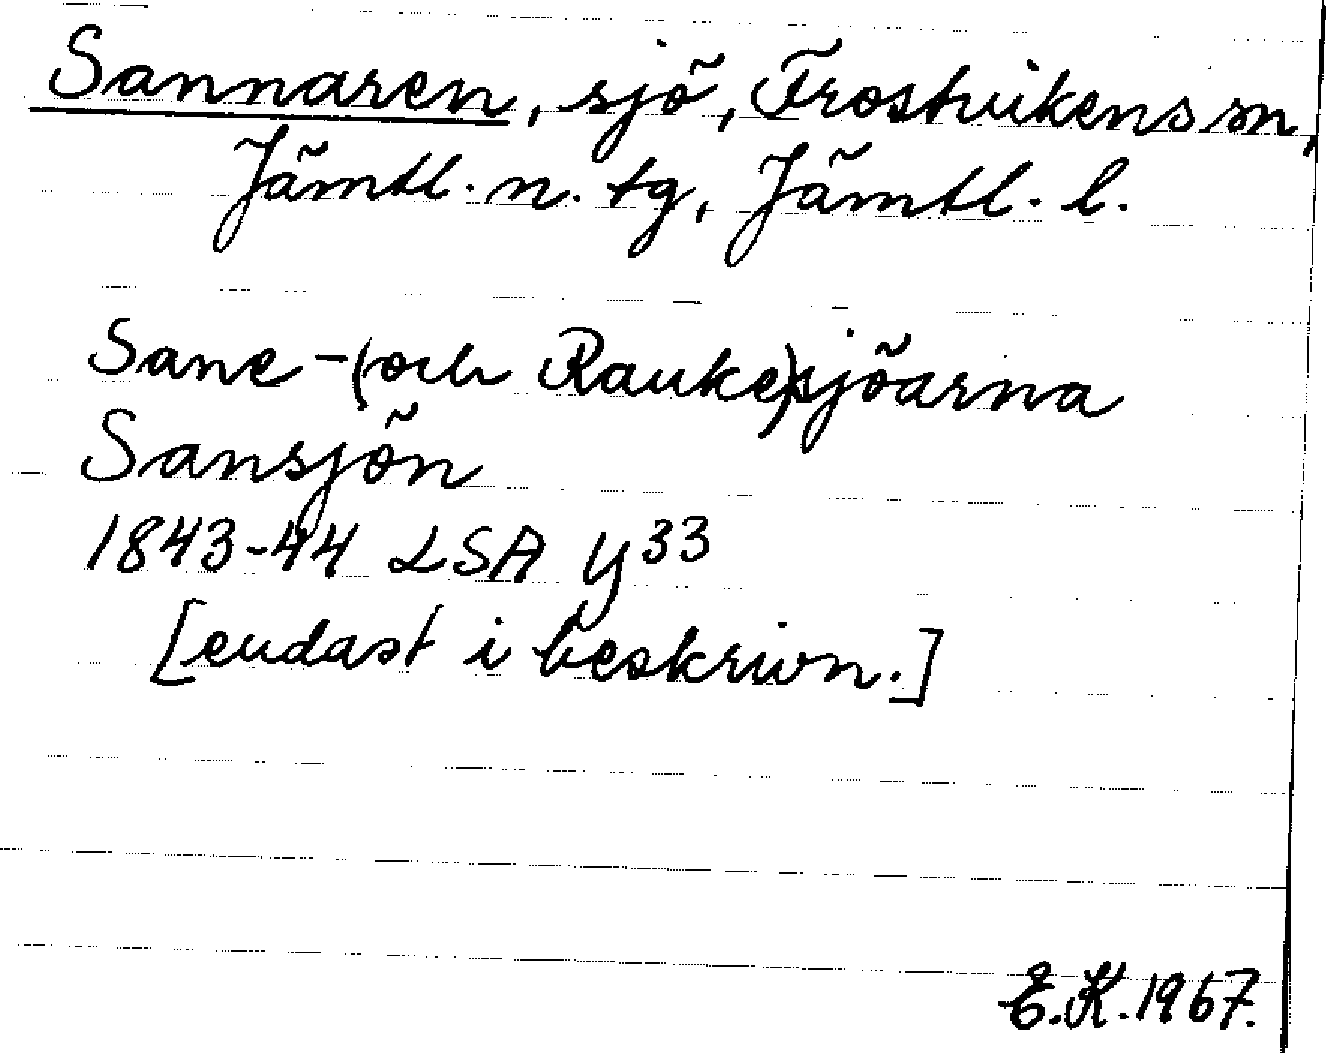 Sannaren, sjö, Frostvikens sn,
Jämtl. n. tg, Jämtl. l.
Sane-(och Rauke)sjöarna
Sansjön
1843-44 LSA Y33
[endast i beskrivn.]
E.K. 1967.